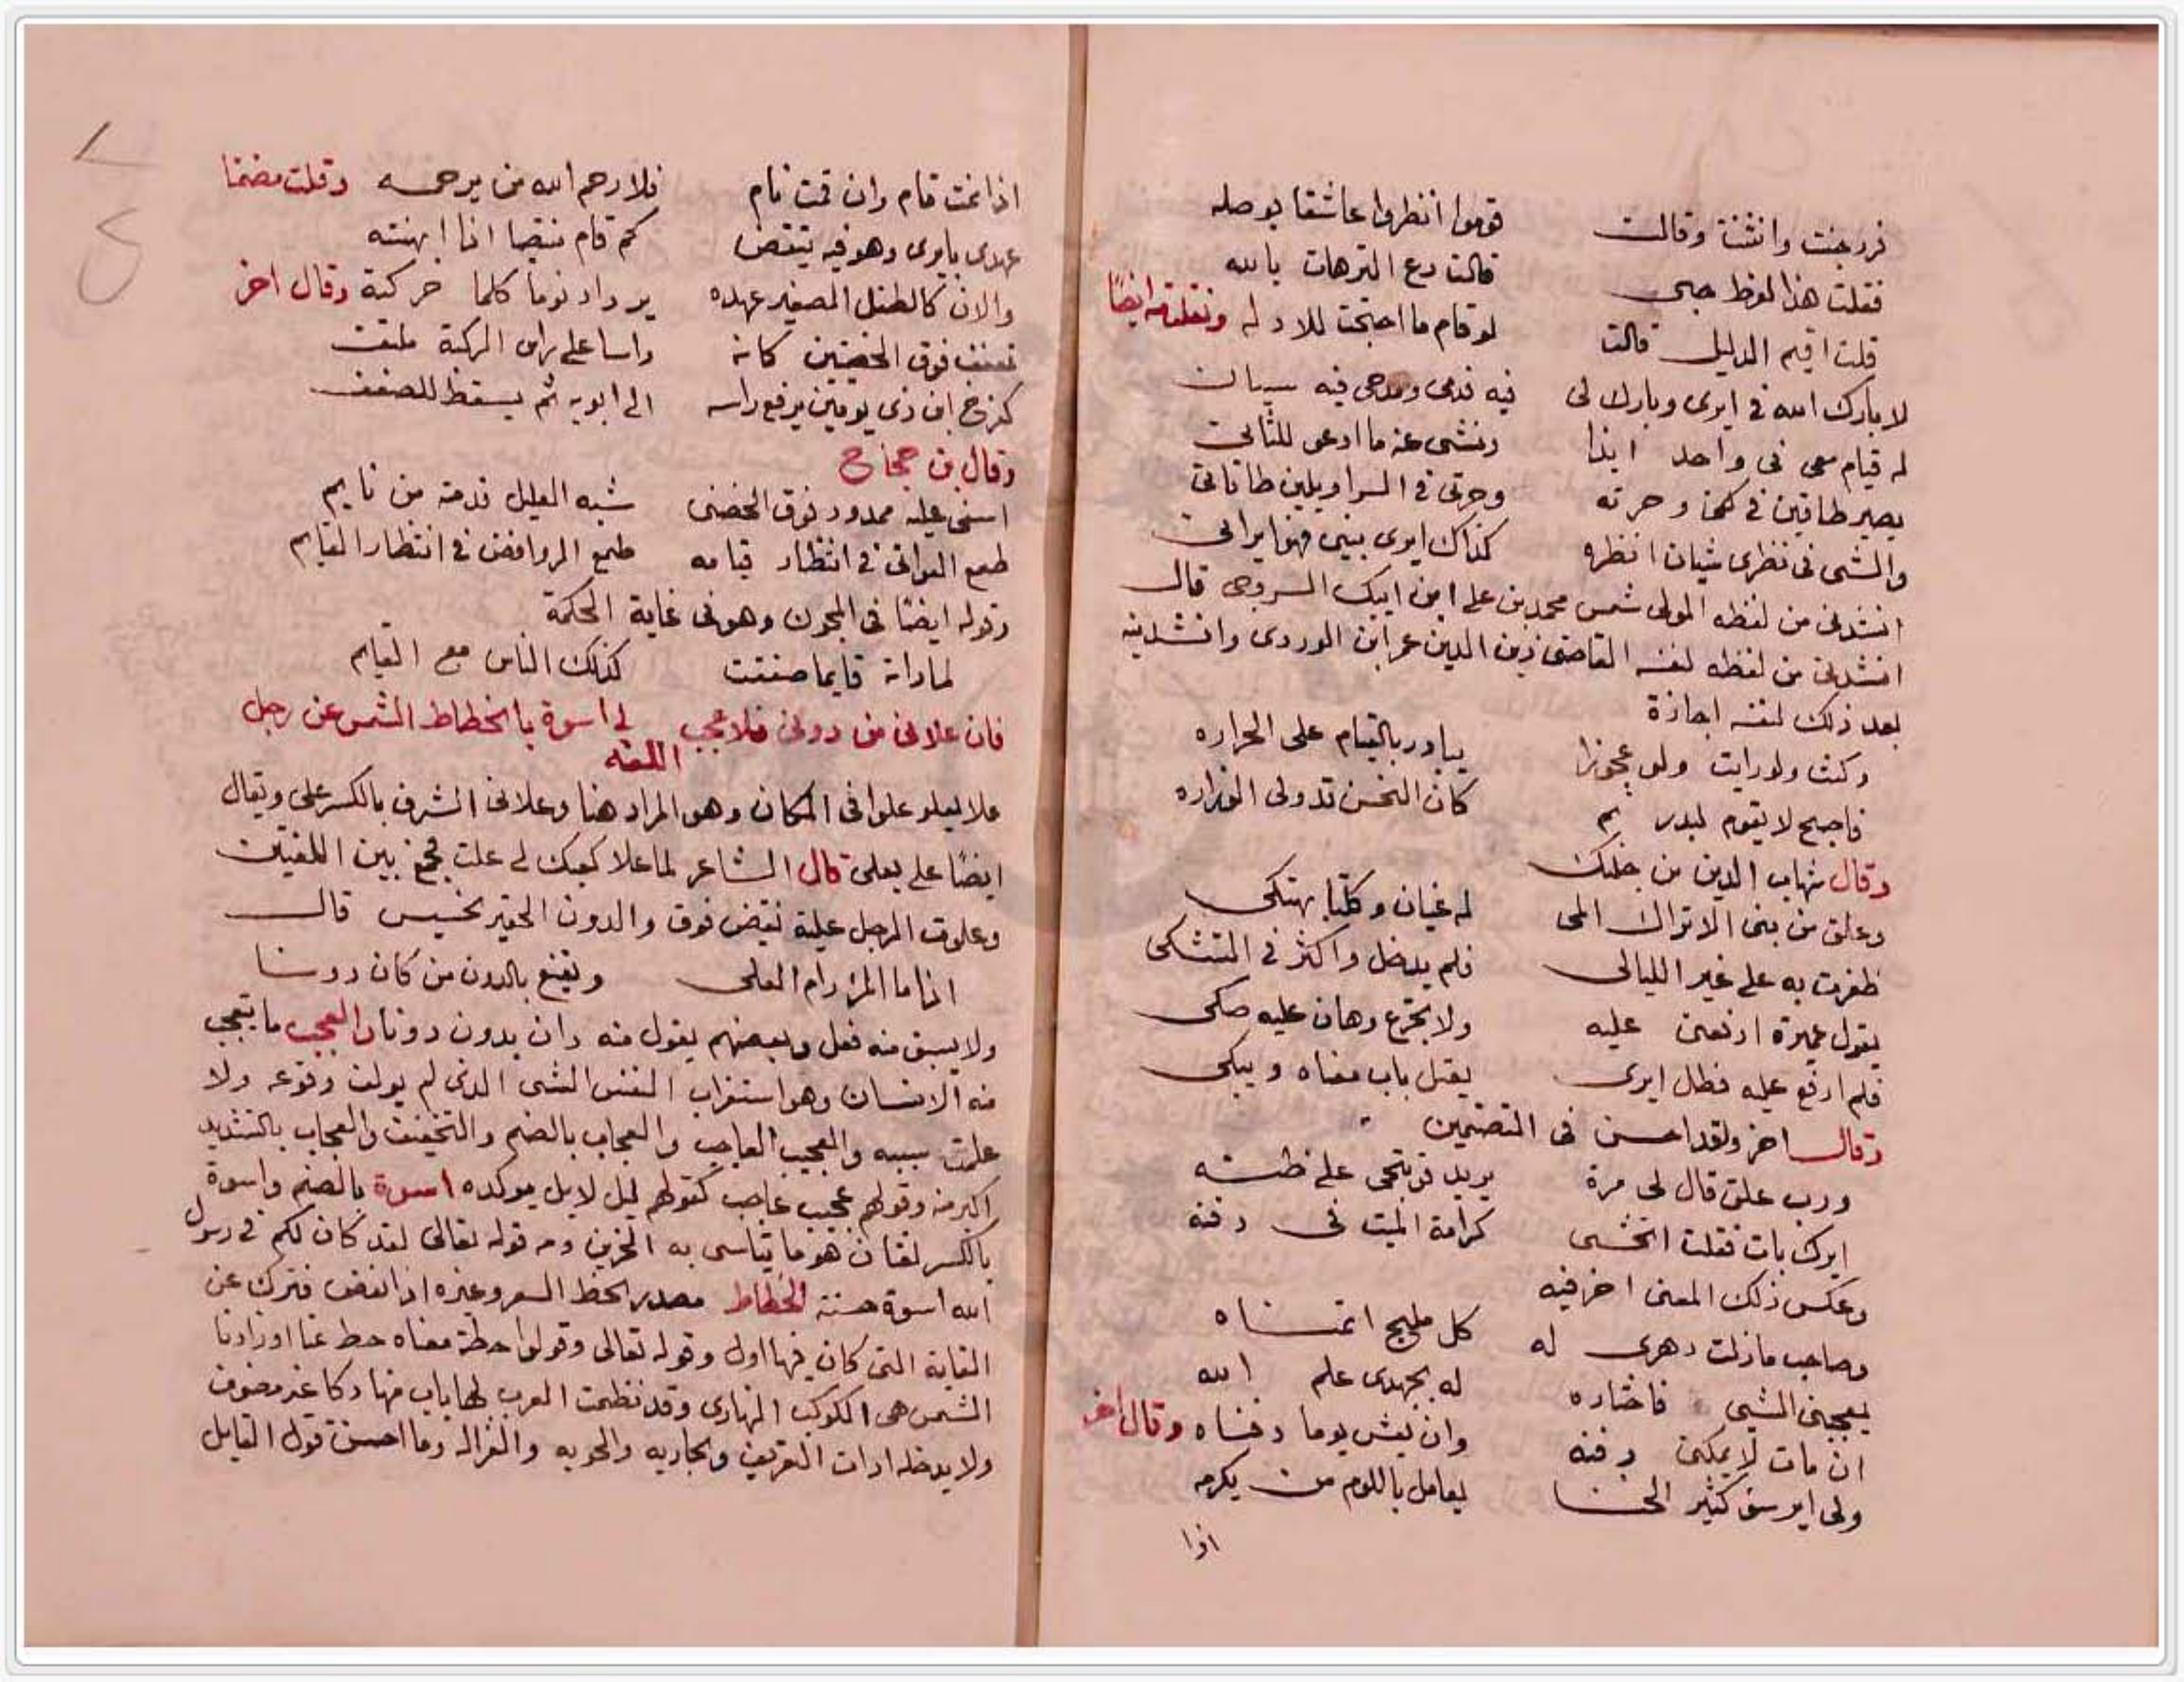 فررجنت وانثنت وقالت قوموا انظروا عاشقا بوصله
فقلت هذا لفرط حبى قالت دع الترهات بالله
قلت اقيم الدليل قالت لو قام ما احتجت للادله ونقلت ايضًا
لا بارك الله فى ايرى وبارك لى فيه فذمى ومدحى فيه سيان
له قيام معى فى واحد ابدا وننثنى عنه ما ادعى للثانى
يصير طاقين فى كمنا وحرته وحرتى فى السراويلين طاقاتى
والشى فى نظرى شيان انظره كذاك ايرى بينى فهوايرانى
انشدنى من لفظه المولى شمس محمد بن على ابن ايبك السروجى قال
انشدنى من لفظه لنفسه القاضى زين الدين عمر ابن الوردى وانشدنيه
بعد ذلك لنفسه اجازة
وكنت ولو رايت ولو عجوزا يبادر بالقيام على الحراره
فاصبح لا يقوم لبدر تم كان النحس تد ولى الوزاره
وقال شهاب الدين بن جلنك
وعلق من بنى الاتراك المى له غيان وكلتا بهتكى
ظفرت به على غير الليالى فلم يدخل واكثر فى التشكى
يقول عميرة ارفعن عليه ولا تجزع وهان عليه صكى
فلم ارفع عليه فظل ايرى يقبل باب مغناه ويبكى
وقال اخر ولقد احسن فى التضمين
ورب علق قال لى مرة يريد توبتجى على ظنه
ايرك بات فقلت اتخشى كرامة الميت فى دفنه
وعكس ذلك المعنى اخر فيه
وصاحب مازلت دهرى له كل مليح اتمناه
يعجبنى الشى فاختاره له بجهدى علم الله
ان مات لا يمكن دفنه وان يعش يوما دفناه وقال اخر
ولى اير سؤ كثير الخنا يعامل باللوم من يكرمه
اذا
اذا نمت قام وان قمت نام فلا رحم الله من يرحمه وقلت مضمنا
عهدى بايرى وهو فيه تيقض كم قام منتصبا اذا ابهنته
والان كالطفل الصغير عهده يزداد نوما كلما حركته وقال اخر
تعفف فوق الخصيتين كانه راسا على راس الركية ملتف
كفرخ ابن ذى يومين يرفع راسه الى ابويه ثم يسقط للضعف
وقال بن حجاج
اسفى عليه ممدود فوق الخصى شبه العليل فدمته من نايم
طمع الغوانى فى انتظار قيامه طمع الروافض فى انتظار القايم
وقوله ايضًا فى المجون وهو فى غاية الحكمة
لما راته قايما صفقت كذلك الناس مع القايم
فان علانى من دونى فلا عجب لى اسوة بانحطاط الشمس عن زحل
اللغه
علا يعلو علوا فى المكان وهو المراد هنا وعلا فى الشرف بالكسر على ويقال
ايضًا على يعلى قال الشاعر لما علا كعبك لى علت فجمع بين اللغتين
وعلوت الرجل علبته نقيض فوق والدون الحقير الخسيس قال
اذا ما المرؤ رام العلى ويقنع بالدون من كان دونا
ولا يسبق منه فعل وبعضهم يقول منه دان يدون دونا والعجب ما يتعجب
منه الانسان وهو استغراب النفس الشى الذى لم يولف وقوعه ولا
علمت سببه والعجيب العاجب والعجاب بالضم والتخفيف والعجاب بالتشديد
اكبر منه وقولهم عجيب عاجب كقولهم ليل لايل موكده اسوة بالضم واسوة
بالكسر لغتان هو ما يتاسى به الحزين ومنه قوله تعالى لقد كان لكم فى رسول
الله اسوة حسنة انحطاط مصدر انحط السعر وغيره اذا انخفض فترك عن
الغاية التى كان فيها اول وقوله تعالى وقولوا حطة معناه حط عنا اوزارنا
الشمس هى الكوكب النهارى وقد نظمت العرب لها باب منها ذكا غير مصروف
ولا يدخله ادات التعريف والجاريه والجونه والغزاله وما احسن قول القايل